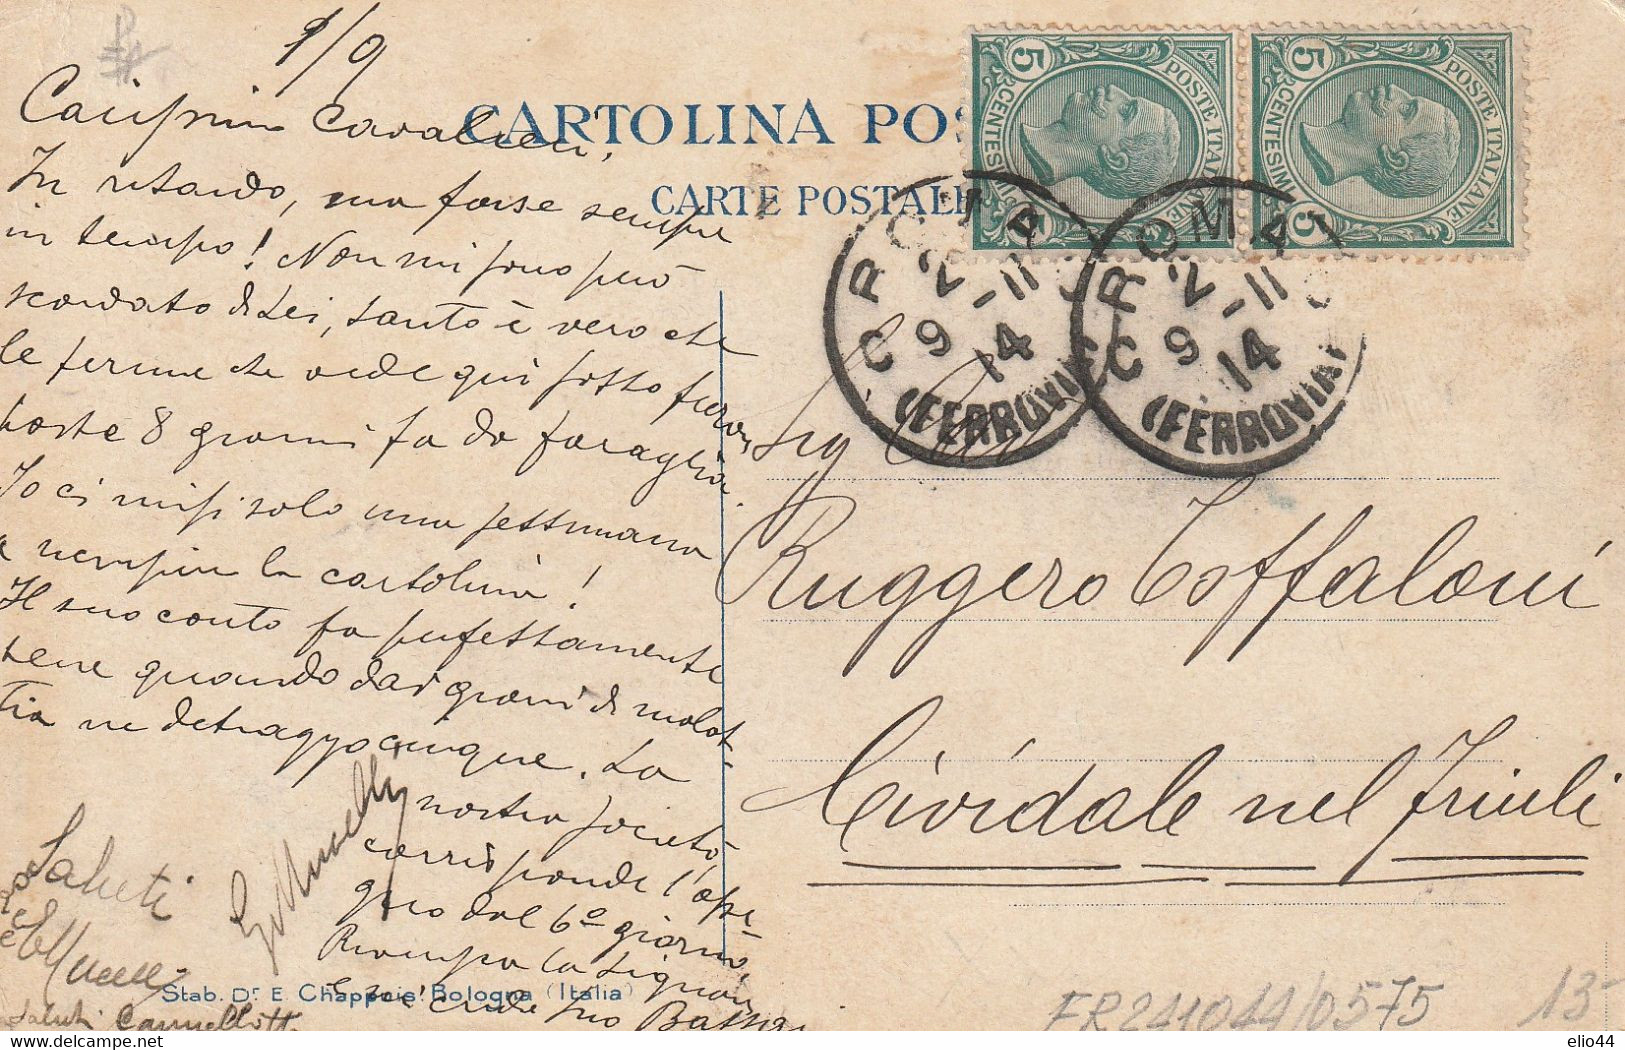 1/9
Carissimo Cavalieri,
In ritardo, ma forse sempre
in tempo! Non mi sono però
scordato di Lei, tanto è vero che
le firme che vede qui sotto furon
poste 8 giorni fa da
Io ci misi solo una settimana
a riempire la cartolina!
Il suo conto fa perfettamente
bene quando dai giorni di malat-
tia ne detraggo cinque. La
nostra società
corrisponde l'asse
gno dal 6º giorno.
la Signora
e mi creda Suo
Saluti
Saluti
CARTOLINA POS
CARTE POSTALE
POSTE ITALIANE
CENTESIMI
5
5
POSTE ITALIANE
CENTESIMI
5
5
ROMA
9-11
14
(FERROVIA)
ROMA
9-11
14
(FERROVIA)
Sig Cav
Ruggero Toffaloni
Cividale nel Friuli
Stab. Dr E. Chappuis Bologna (Italia)
FR241044/0575
13-
elio44